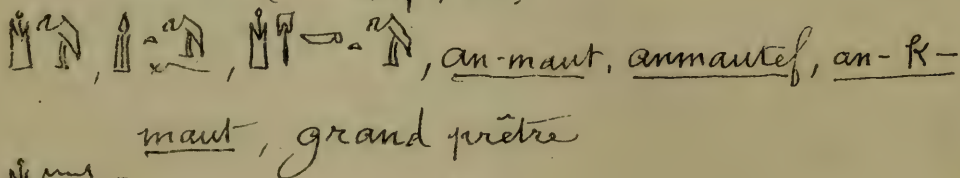 , , , an-maut, anmautef, an-k-
maut, grand prêtre